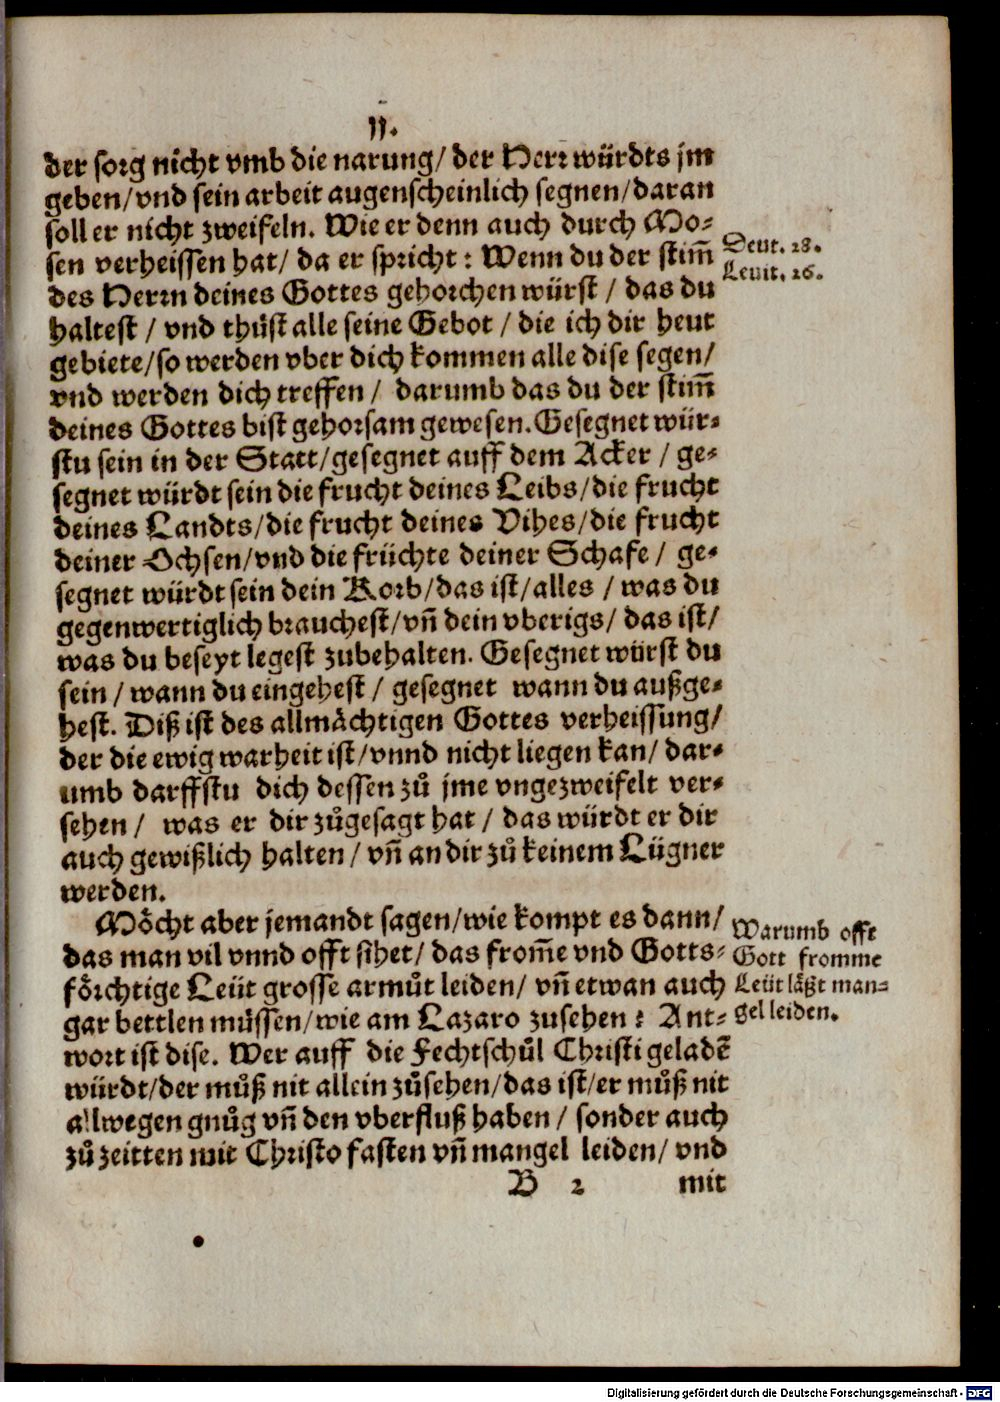 11.
der sorg nicht vmb die narung/ der Herr würdts jm
geben/vnd sein arbeit augenscheinlich segnen/daran
soll er nicht zweifeln. Wie er denn auch durch Mo-
sen verheissen hat/ da er spricht: Wenn du der stim̃
Deut. 28.
Levit. 26.
des Herrn deines Gottes gehorchen würst / das du
haltest / vnd thůst alle seine Gebot / die ich dir heut
gebiete/so werden vber dich kommen alle dise segen/
vnd werden dich treffen / darumb das du der stim̃
deines Gottes bist gehorsam gewesen. Gesegnet wür-
stu sein in der Statt/gesegnet auff dem Acker / ge-
segnet würdt sein die frucht deines Leibs/die frucht
deines Landts/die frucht deines Vihes/die frucht
deiner Ochsen/vnd die früchte deiner Schafe / ge-
segnet würdt sein dein Korb/das ist/alles / was du
gegenwertiglich brauchest/vñ dein vberigs/ das ist/
was du beseyt legest zubehalten. Gesegnet würst du
sein / wann du eingehest / gesegnet wann du außge-
hest. Diß ist des allmåchtigen Gottes verheissung/
der die ewig warheit ist/vnnd nicht liegen kan/ dar-
umb darffstu dich dessen zů jme vngezweifelt ver-
sehen / was er dir zůgesagt hat / das würdt er dir
auch gewißlich halten / vñ an dir zů keinem Lügner
werden.
Mőcht aber jemandt sagen/wie kompt es dann/
das man vil vnnd offt sihet/ das from̃e vnd Gotts-
főrchtige Leüt grosse armůt leiden/ vñ etwan auch
gar bettlen můssen/wie am Lazaro zusehen? Ant-
Warumb offt
Gott fromme
Leüt låßt man-
gel leiden.
wort ist dise. Wer auff die Fechtschůl Christi geladẽ
würdt/der můß nit allein zůsehen/das ist/er můß nit
allwegen gnůg vñ den vberfluß haben / sonder auch
zů zeitten mit Christo fasten vñ mangel leiden/ vnd
B 2 mit
Digitalisierung gefördert durch die Deutsche Forschungsgemeinschaft - DFG